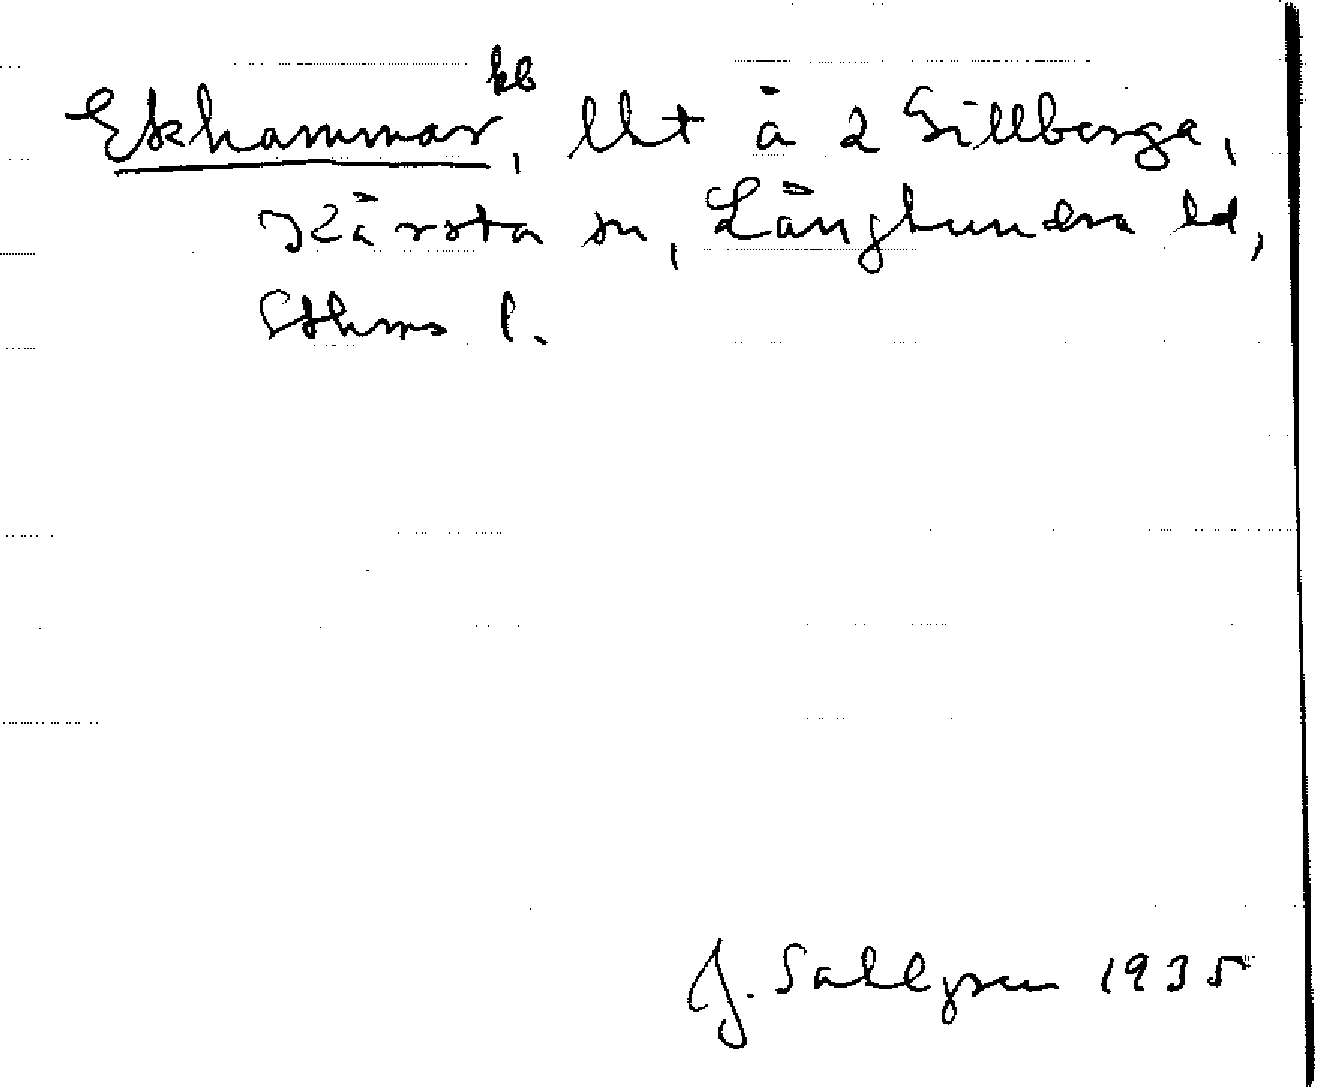 Ekhammar kb, lht å 2 Gillberga,
Kårsta sn, Långhundra hd,
Sthms l.
J. Sahlgren 1935